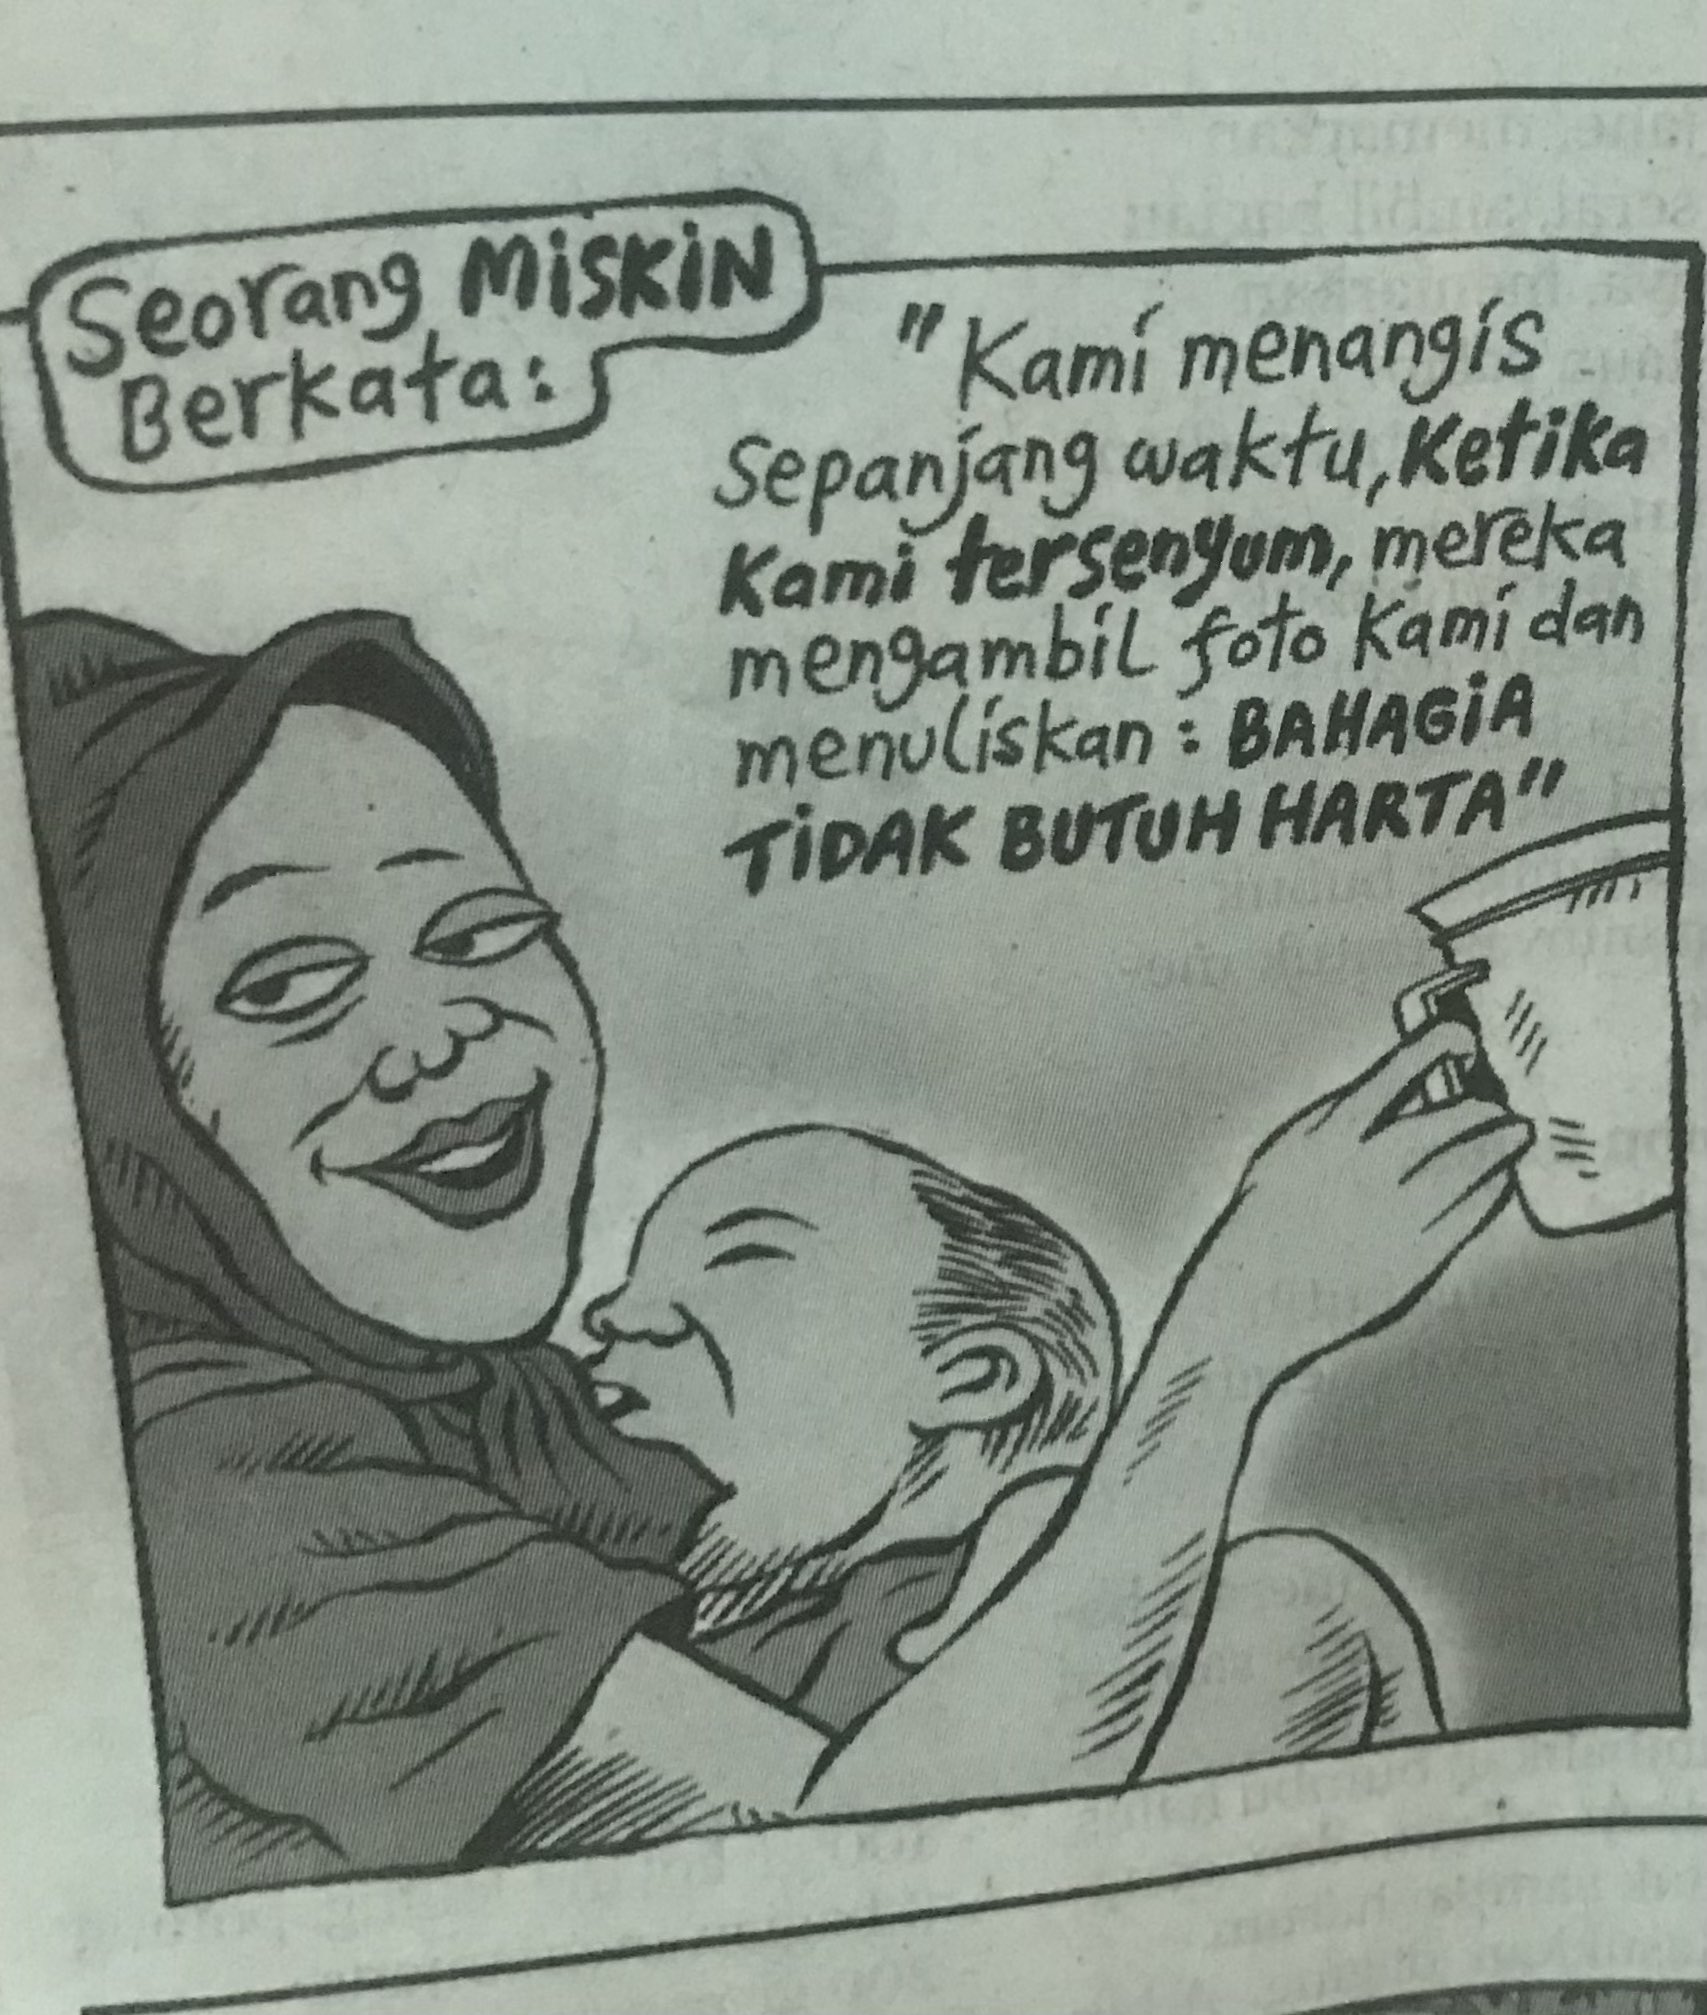 Seorang MiSKiN
Berkata:
"Kami menangis
Sepanjang waktu, Ketika
Kami tersenyum, mereka
mengambil foto Kami dan
menuliskan : BAHAGiA
TiDAK BUTUH HARTA"